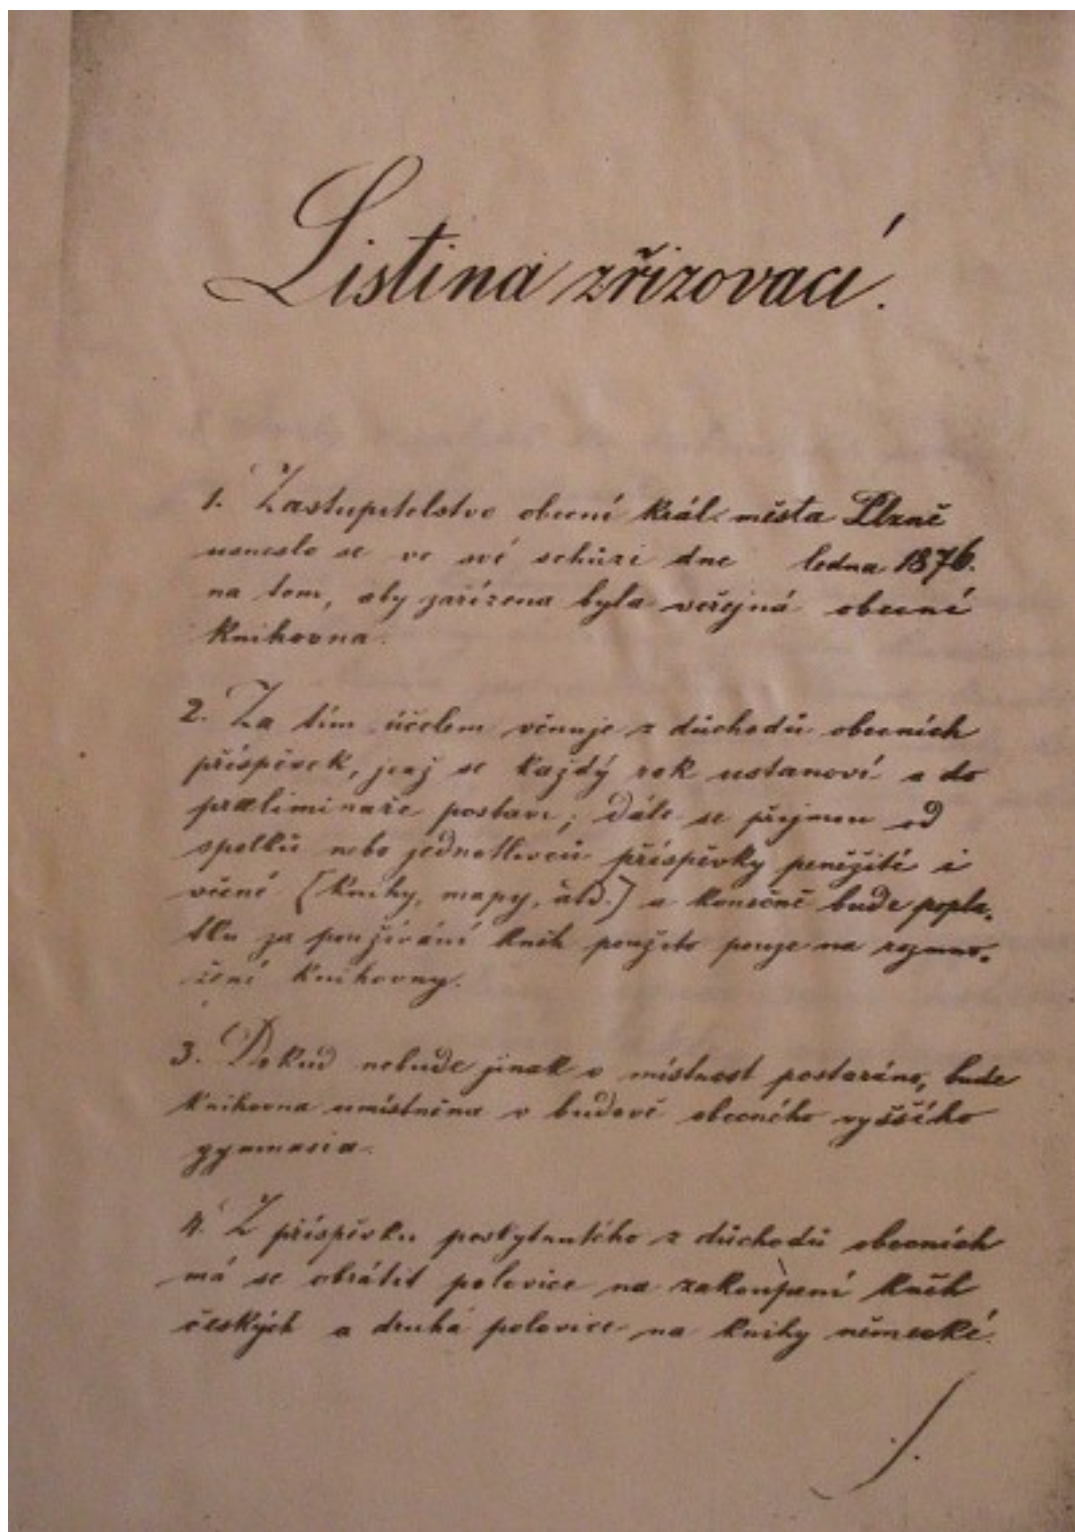 Listina zřizovací.
1. Zastupitelstvo obecní král. města Plzně
usneslo se ve své schůzi dne ledna 1876.
na tom, aby zařízena byla veřejná obecní
knihovna.
2. Za tím účelem věnuje z důchodů obecních
příspěvek, jenž se každý rok ustanoví a do
praeliminaře postaví; dále se přijmou od
spolků nebo jednotlivců příspěvky peněžité i
věcné (knihy, mapy, atd.) a konečně bude popla-
tku za používání knih použito pouze na rozmno-
žení knihovny.
3. Dokud nebude jinak o místnost postaráno, bude
knihovna umístněna v budově obecného vyššího
gymnasia.
4. Z příspěvku poskytnutého z důchodů obecních
má se obrátit polovice na zakoupení kněh
českých a druhá polovice na knihy německé.
./.